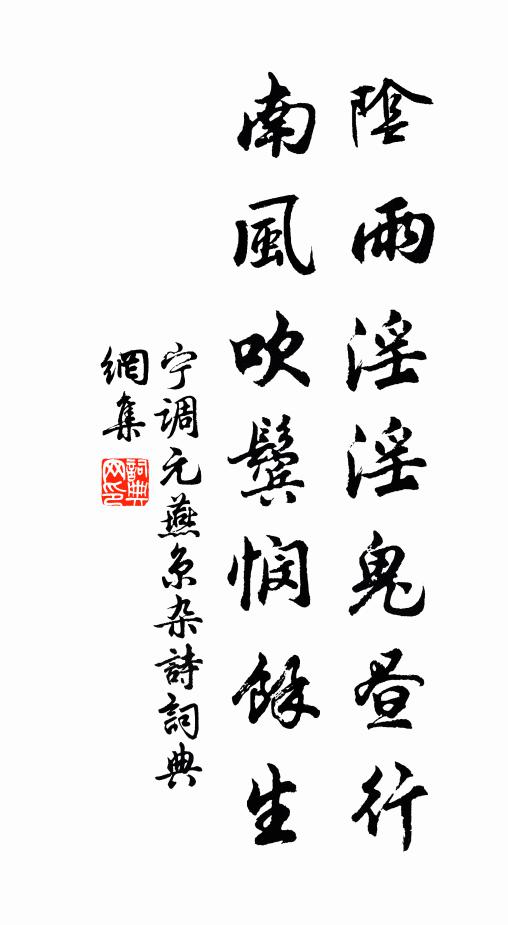 陰雨淫淫鬼昼行
南風吹鬓悯餘生
宁调元燕京杂詩詞典
網集
詞典
网印